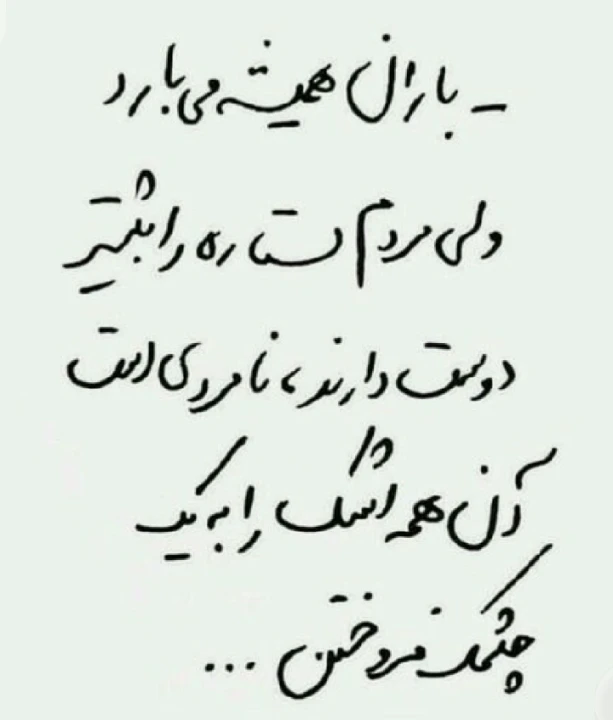 - باران همیشه می‌بارد
ولی مردم ستاره را بیشتر
دوست دارند، نامردی است
آن همه اشک را به یک
چشمک فروختن ...